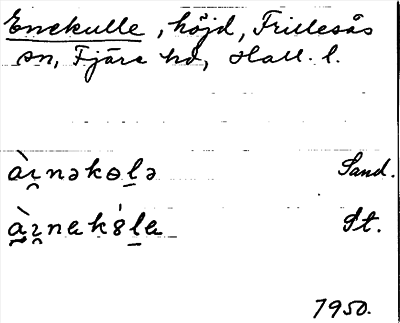 Enekulle, höjd, Frillesås
sn, Fjäre hd, Hall. l.
àı̯nəkɵl̠ə Sand.
à̠ı̯nɐk8́l̠ɐ St.
1950.